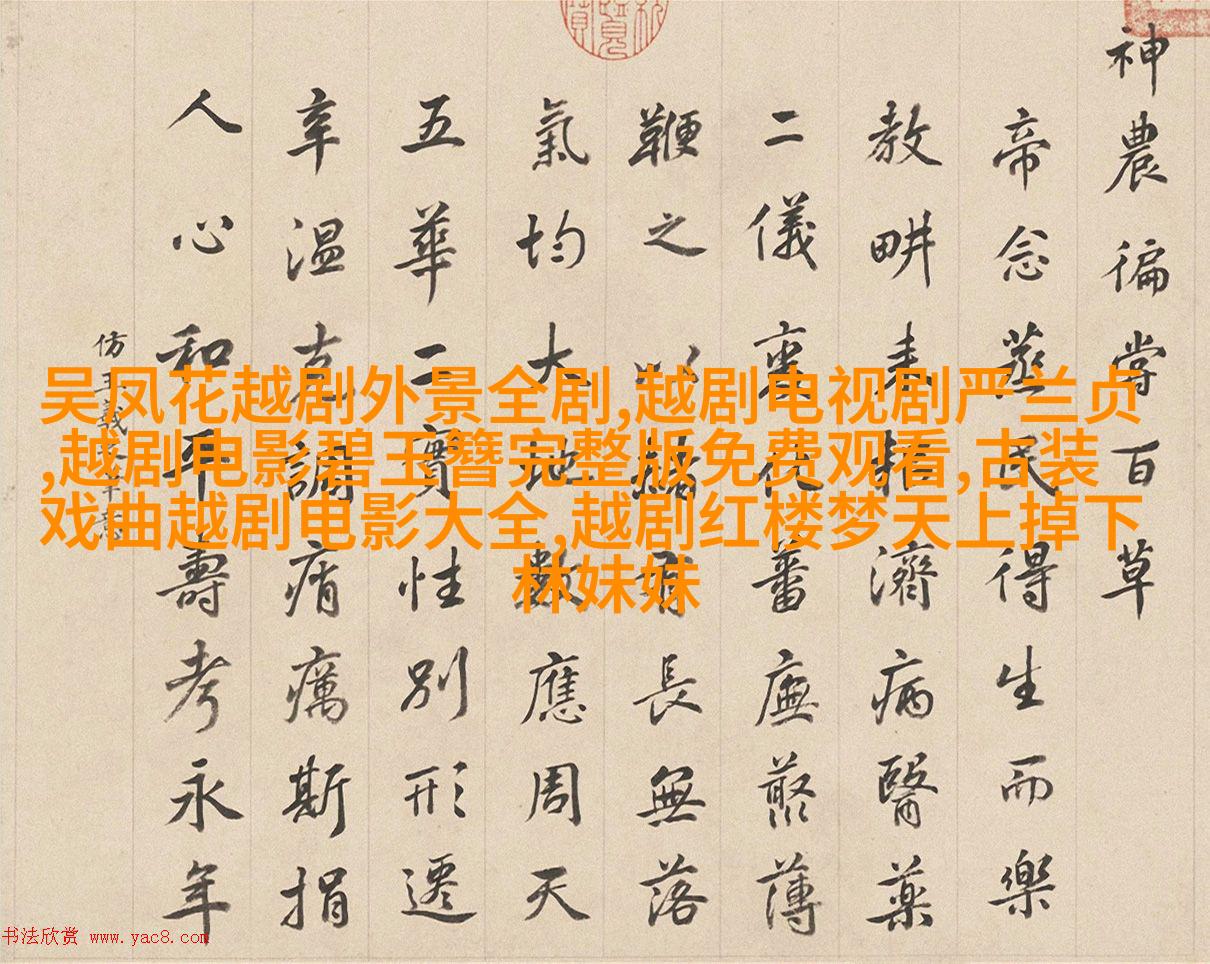 神農徧嘗百草
帝念蒸民得生而樂
教畊耒耜濟病醫藥
二儀代蕃廡叢薄
鞭之以赭長無落
氣均大地數應周天
五華二實性別形遷
辛溫克調痟癘斯捐
人心和平壽考永年
仿王羲之筆意
吴凤花越剧外景全剧,越剧电视剧严兰贞
,越剧电影碧玉簪完整版免费观看,古装
戏曲越剧电影大全,越剧红楼梦天上掉下
林妹妹
书法欣赏 www.yac8.com